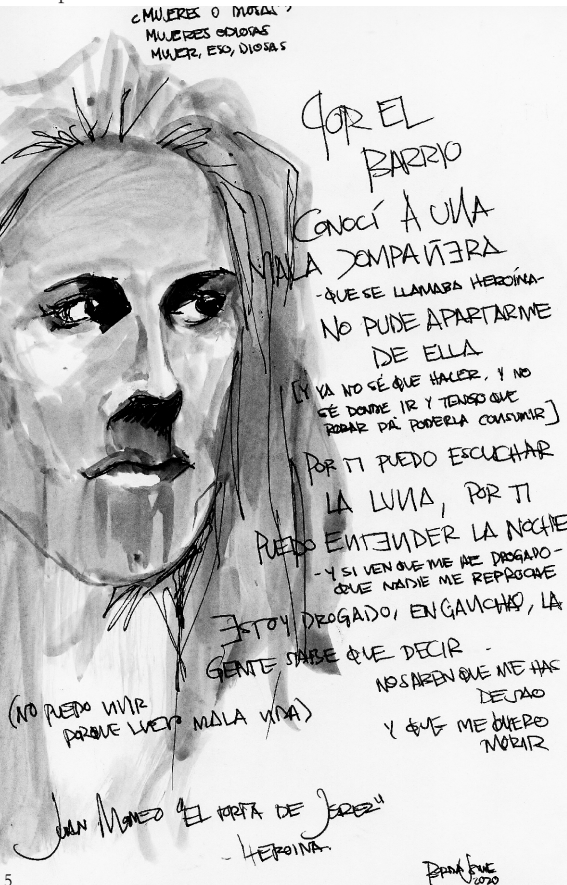 ¿MUJERES O DIOSAS?
MUJERES ODIOSAS
MUJER, ESO, DIOSAS
POR EL
BARRIO
CONOCÍ A UNA
MALA COMPAÑERA
-QUE SE LLAMABA HEROÍNA-
NO PUDE APARTARME
DE ELLA
[Y YA NO SÉ QUE HACER, Y NO
SÉ DONDE IR Y TENGO QUE
ROBAR PA' PODERLA CONSUMIR]
POR TI PUEDO ESCUCHAR
LA LUNA, POR TI
PUEDO ENTENDER LA NOCHE
- Y SI VEN QUE ME HE DROGADO -
QUE NADIE ME REPROCHE
ESTOY DROGADO, ENGANCHAO, LA
GENTE SABE QUE DECIR -
NO SABEN QUE ME HAS
DEJAO
Y QUE ME QUIERO
MORIR
(NO PUEDO VIVIR
PORQUE LLEVO MALA VIDA)
JUAN MONEO "EL TORTA DE JEREZ"
- HEROINA.
2020
5